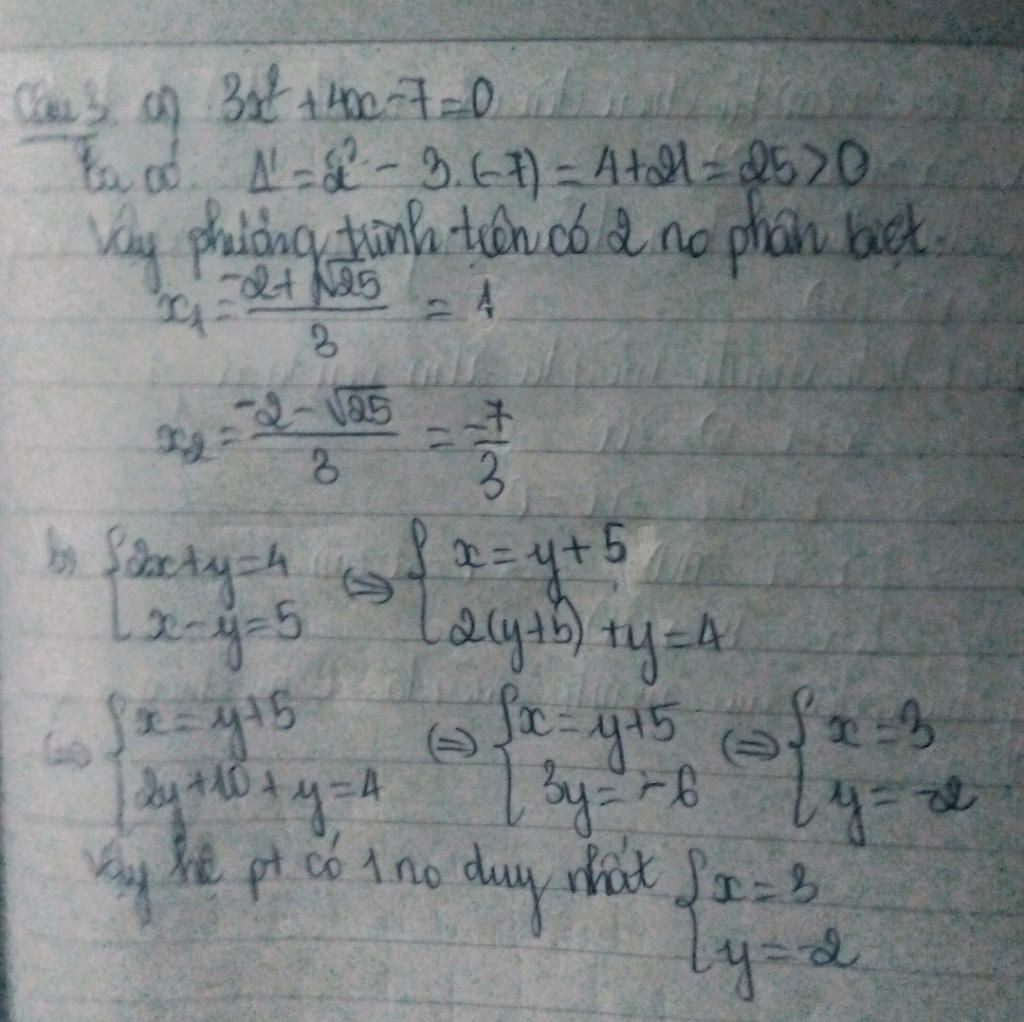 Câu 3. a) 3x² + 4x - 7 = 0
Ta có Δ' = 2² - 3.(-7) = 4 + 21 = 25 > 0
Vậy phương trình trên có 2 no phân biệt.
x₁ = (-2 + √25)/3 = 1
x₂ = (-2 - √25)/3 = -7/3
b) { 2x + y = 4 ; x - y = 5 ⇔ { x = y + 5 ; 2(y + 5) + y = 4
⇔ { x = y + 5 ; 2y + 10 + y = 4 ⇔ { x = y + 5 ; 3y = -6 ⇔ { x = 3 ; y = -2
Vậy hệ pt có 1 no duy nhất { x = 3 ; y = -2